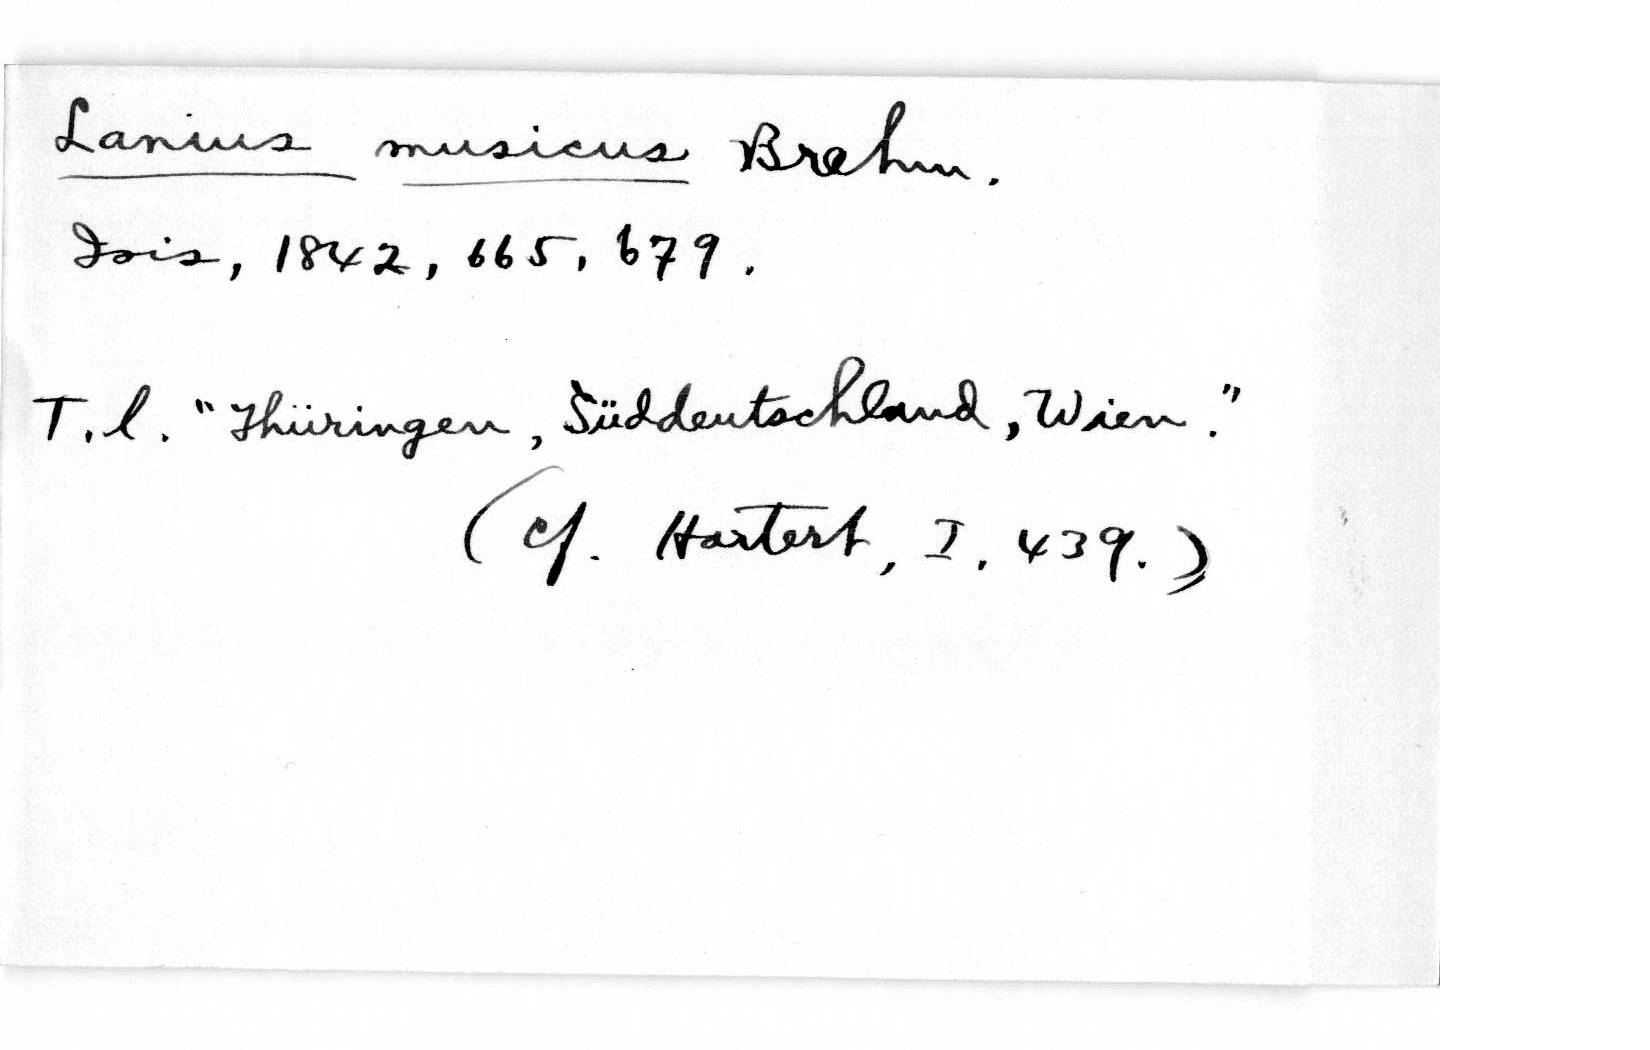 Lanius musicus Brehm.
Isis, 1842, 665, 679.
T. l. "Thüringen, Süddeutschland, Wien."
(cf. Hartert, I. 439.)